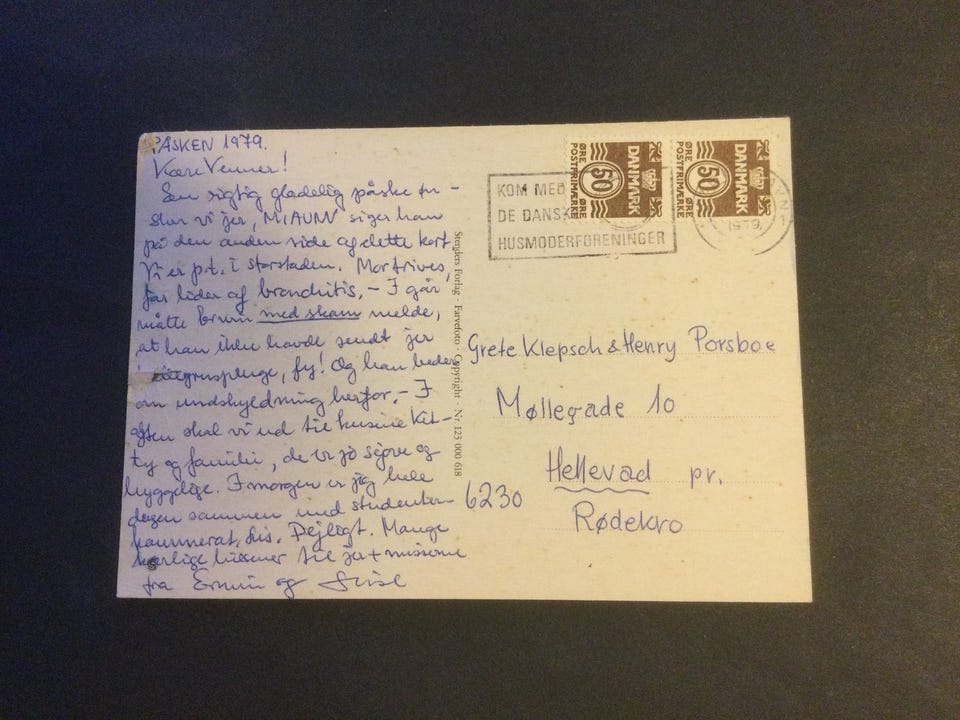 PÅSKEN 1979.
Kære Venner!
En rigtig glædelig påske øn-
sker vi jer, MIAUW siger han
på den anden side af dette kort
Vi er p.t. i storstaden. Mor trives,
far lider af bronchitis. - I går
måtte Erwin med skam melde,
at han ikke havde sendt jer
fy! Og han beder
om undskyldning herfor. - I
aften skal vi ud til kusine Kit-
ty og familie, de er jo sjove og
hyggelige. I morgen er jeg hele
dagen sammen med studenter-
kammerat, Lis. Dejligt. Mange
kærlige hilsener til jer + misserne
fra Erwin og
Stenders Forlag - Farvefoto - Copyright - Nr. 123 000 618
KOM MED
DE DANSK
HUSMODERFORENINGER
DANMARK
50
ØRE
POSTFRIMÆRKE
DANMARK
50
ØRE
POSTFRIMÆRKE
1979
Grete Klepsch & Henry Porsboe
Møllegade 10
Hellevad pr.
6230 Rødekro